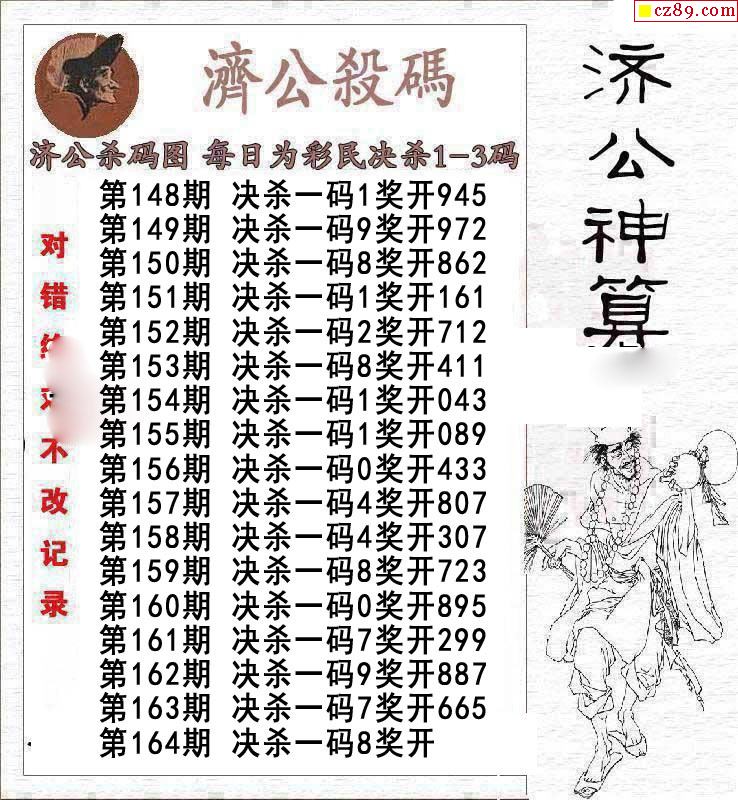 cz89.com
濟公殺碼
济公杀码图 每日为彩民决杀1-3码
第148期 决杀一码1奖开945
第149期 决杀一码9奖开972
第150期 决杀一码8奖开862
第151期 决杀一码1奖开161
第152期 决杀一码2奖开712
第153期 决杀一码8奖开411
第154期 决杀一码1奖开043
第155期 决杀一码1奖开089
第156期 决杀一码0奖开433
第157期 决杀一码4奖开807
第158期 决杀一码4奖开307
第159期 决杀一码8奖开723
第160期 决杀一码0奖开895
第161期 决杀一码7奖开299
第162期 决杀一码9奖开887
第163期 决杀一码7奖开665
第164期 决杀一码8奖开
对错不改记录
济公神算